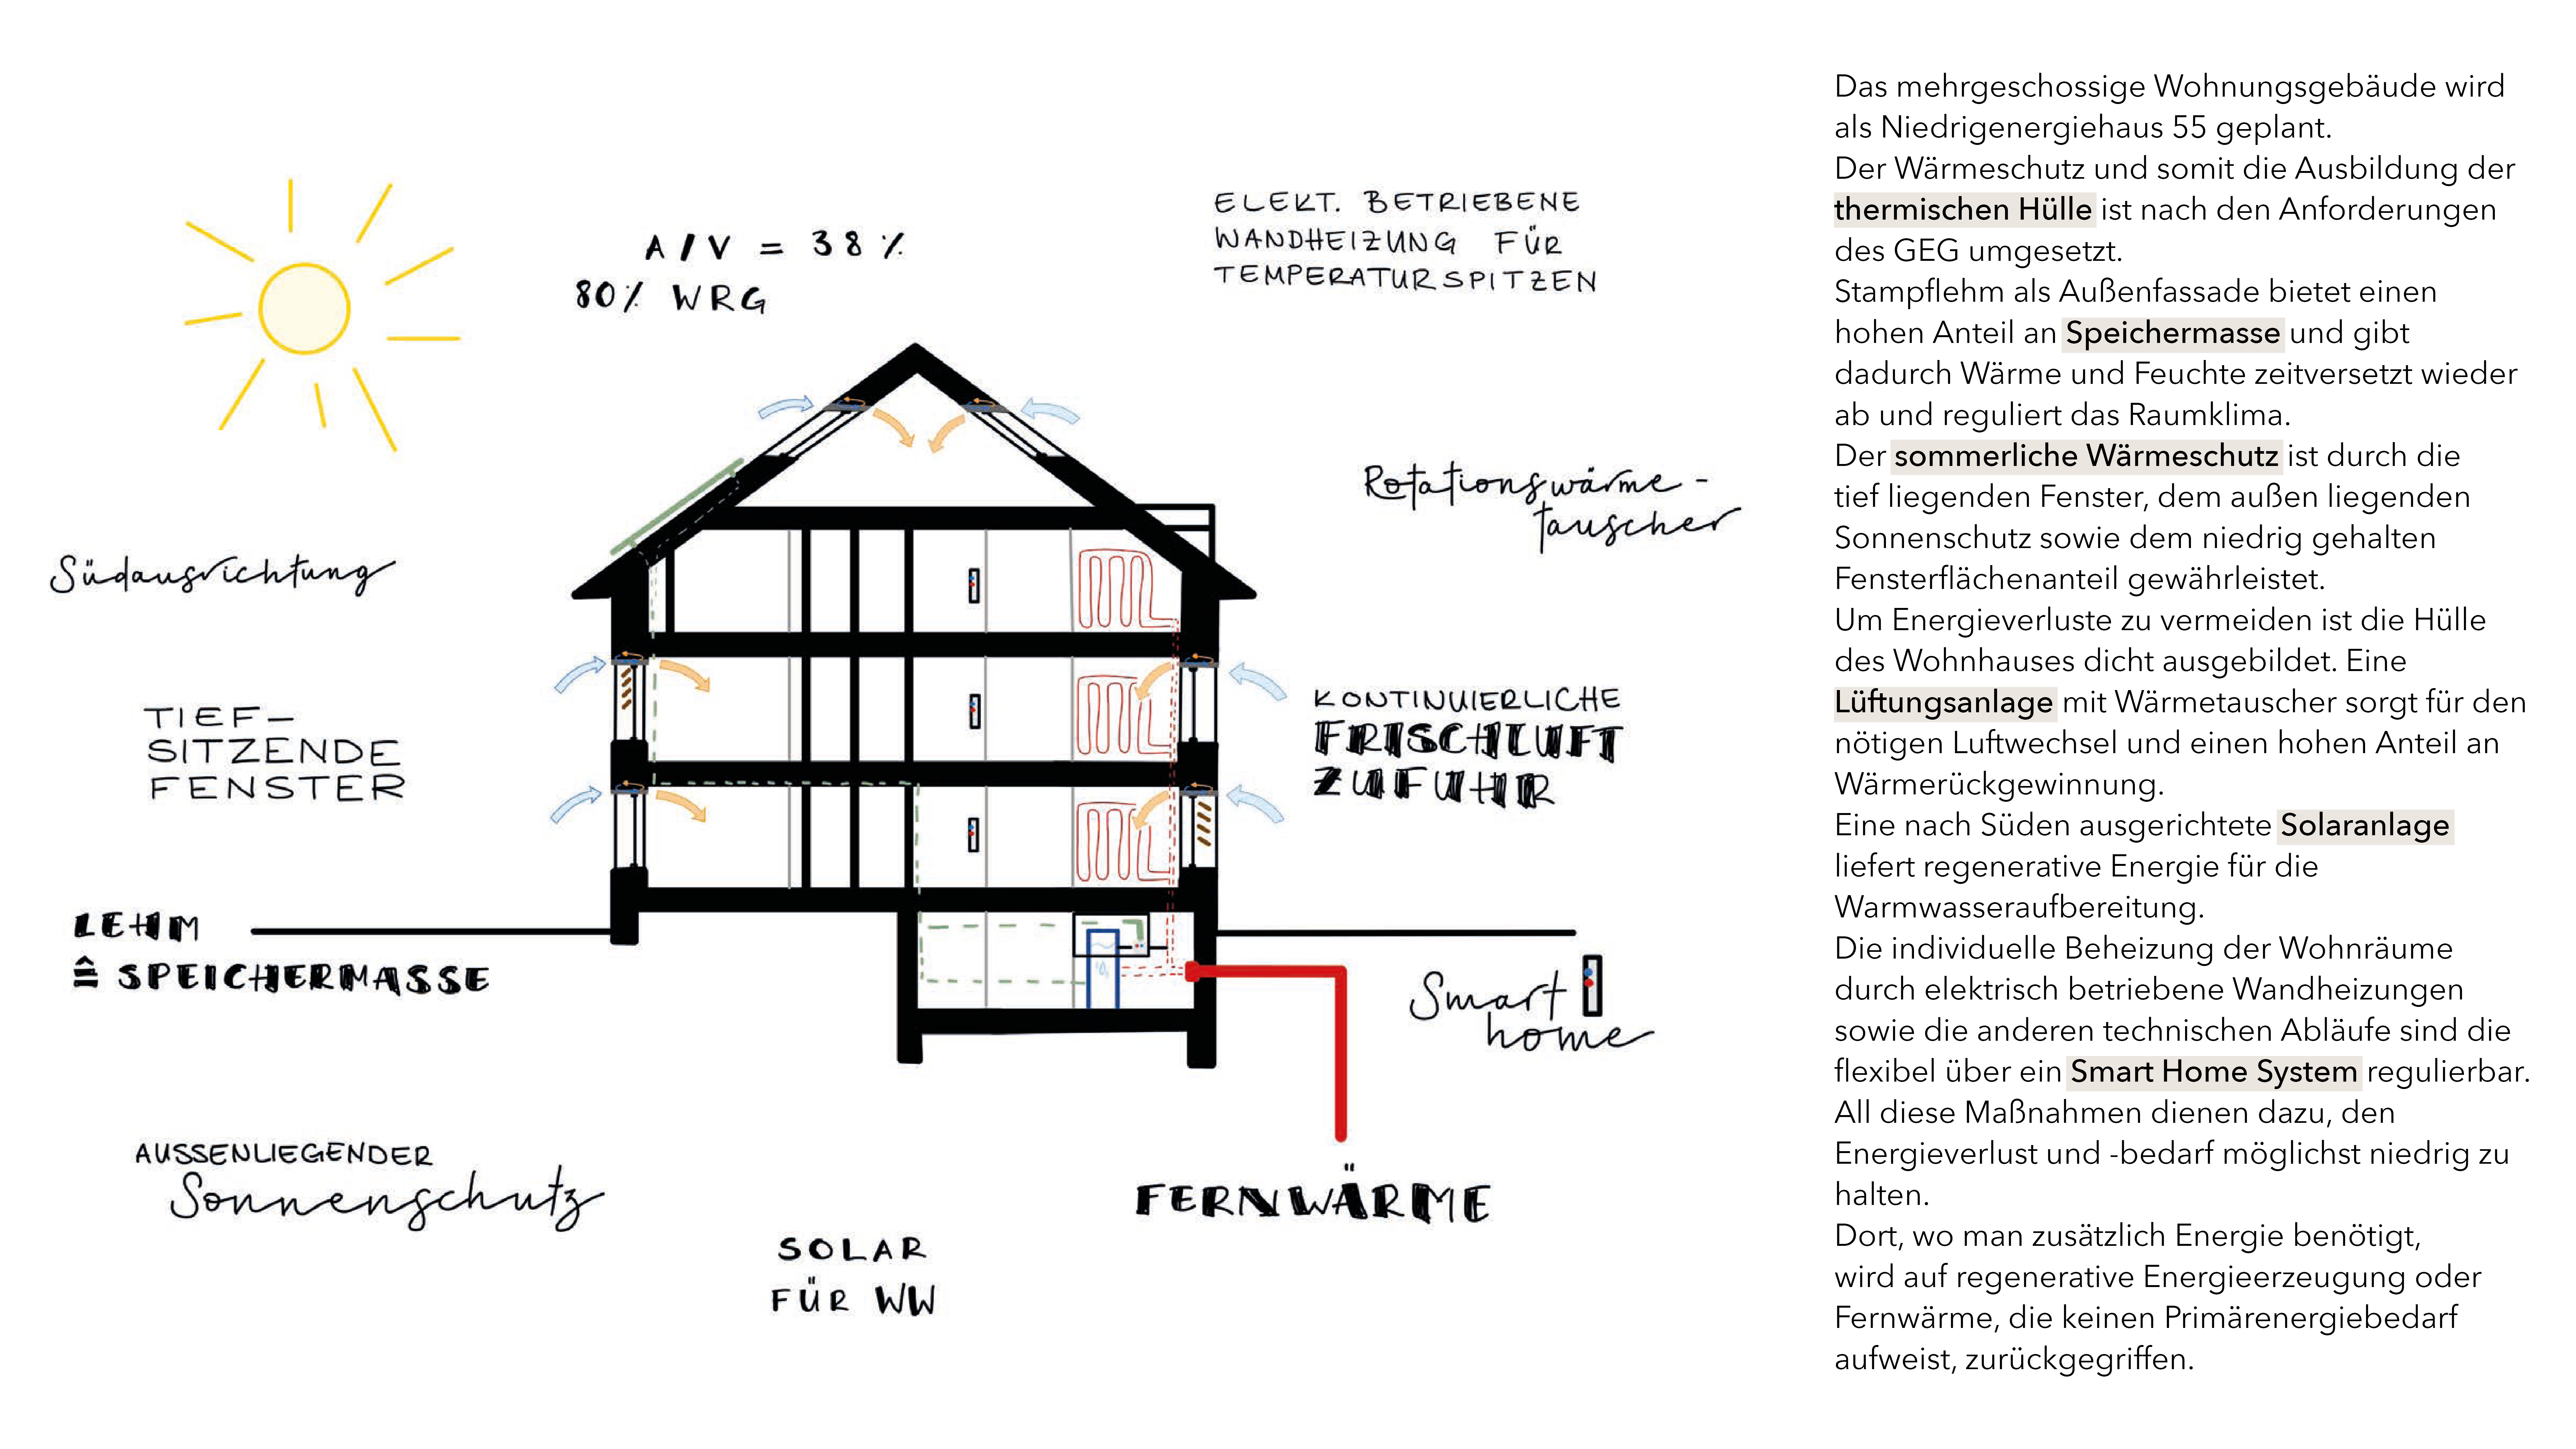 A/V = 38 %
80% WRG
ELEKT. BETRIEBENE
WANDHEIZUNG FÜR
TEMPERATURSPITZEN
Rotationswärme-
tauscher
Südausrichtung
TIEF-
SITZENDE
FENSTER
KONTINUIERLICHE
FRISCHLUFT
ZUFUHR
LEHM
≙ SPEICHERMASSE
Smart
home
AUSSENLIEGENDER
Sonnenschutz
FERNWÄRME
SOLAR
FÜR WW
Das mehrgeschossige Wohnungsgebäude wird
als Niedrigenergiehaus 55 geplant.
Der Wärmeschutz und somit die Ausbildung der
thermischen Hülle ist nach den Anforderungen
des GEG umgesetzt.
Stampflehm als Außenfassade bietet einen
hohen Anteil an Speichermasse und gibt
dadurch Wärme und Feuchte zeitversetzt wieder
ab und reguliert das Raumklima.
Der sommerliche Wärmeschutz ist durch die
tief liegenden Fenster, dem außen liegenden
Sonnenschutz sowie dem niedrig gehalten
Fensterflächenanteil gewährleistet.
Um Energieverluste zu vermeiden ist die Hülle
des Wohnhauses dicht ausgebildet. Eine
Lüftungsanlage mit Wärmetauscher sorgt für den
nötigen Luftwechsel und einen hohen Anteil an
Wärmerückgewinnung.
Eine nach Süden ausgerichtete Solaranlage
liefert regenerative Energie für die
Warmwasseraufbereitung.
Die individuelle Beheizung der Wohnräume
durch elektrisch betriebene Wandheizungen
sowie die anderen technischen Abläufe sind die
flexibel über ein Smart Home System regulierbar.
All diese Maßnahmen dienen dazu, den
Energieverlust und -bedarf möglichst niedrig zu
halten.
Dort, wo man zusätzlich Energie benötigt,
wird auf regenerative Energieerzeugung oder
Fernwärme, die keinen Primärenergiebedarf
aufweist, zurückgegriffen.